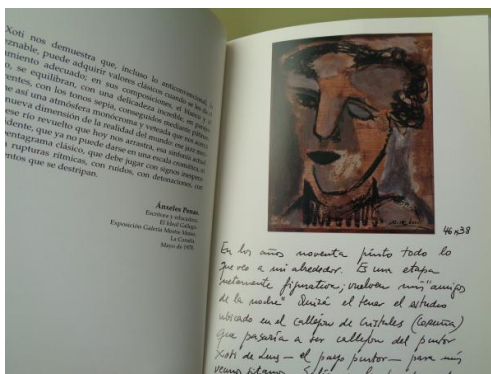 Xoti nos demuestra que, incluso lo anticonvencional, lo
eznable, puede adquirir valores clásicos cuando se les da el
umiento adecuado; en sus composiciones, el blanco y el
o, se equilibran, con una delicadeza increíble, en paralelo
entes, con los tonos sepia, conseguidos mediante pátinas
e así una atmósfera monócroma y veteada que nos acerca
nueva dimensión de la realidad del mundo
ese río revuelto que hoy nos arrastra, esa sinfonía actual
idente, que ya no puede darse en una escala cromática, ni
pentagrama clásico, que debe jugar con signos
rupturas rítmicas, con ruidos, con detonaciones, con
entos que se destripan.
Ánxeles Penas.
Escritora y educadora.
El Ideal Gallego.
Exposición Galería
La Coruña
Mayo de 1978.
46x38
En los años noventa pinto todo lo
que veo a mi alrededor. Es una etapa
netamente figurativa; vuelven mis "amigos
de la noche" Quizá el tener el estudio
ubicado en el callejón de Cristales (Coruña)
que pasaría a ser callejón del pintor
Xoti de Luis – el payo pintor – para mis
vecinos gitanos.